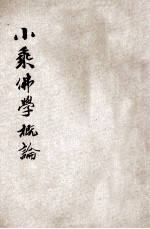 小乘佛學概論